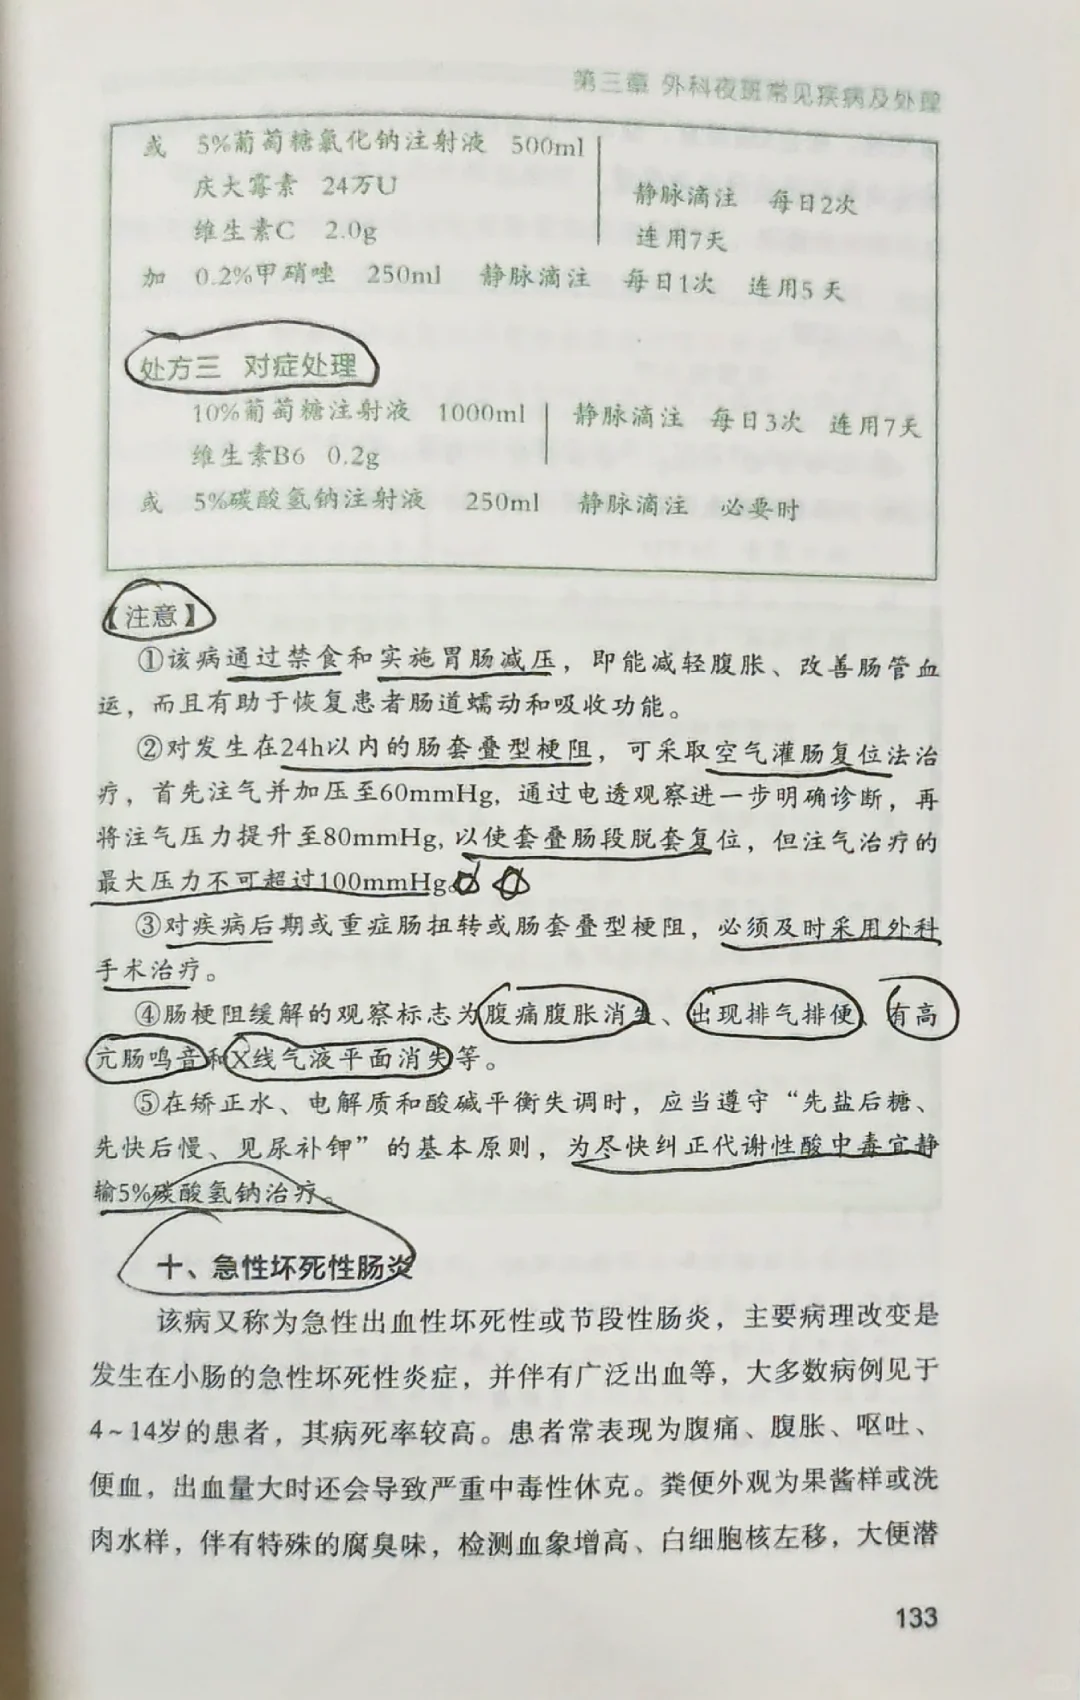 第三章 外科夜班常见疾病及处理
或 5%葡萄糖氯化钠注射液 500ml
庆大霉素 24万U
静脉滴注 每日2次
维生素C 2.0g
连用7天
加 0.2%甲硝唑 250ml 静脉滴注 每日1次 连用5天
处方三 对症处理
10%葡萄糖注射液 1000ml 静脉滴注 每日3次 连用7天
维生素B6 0.2g
或 5%碳酸氢钠注射液 250ml 静脉滴注 必要时
【注意】
①该病通过禁食和实施胃肠减压，即能减轻腹胀、改善肠管血
运，而且有助于恢复患者肠道蠕动和吸收功能。
②对发生在24h以内的肠套叠型梗阻，可采取空气灌肠复位法治
疗，首先注气并加压至60mmHg, 通过电透观察进一步明确诊断，再
将注气压力提升至80mmHg, 以使套叠肠段脱套复位，但注气治疗的
最大压力不可超过100mmHg。
③对疾病后期或重症肠扭转或肠套叠型梗阻，必须及时采用外科
手术治疗。
④肠梗阻缓解的观察标志为腹痛腹胀消失、出现排气排便、有高
亢肠鸣音和X线气液平面消失等。
⑤在矫正水、电解质和酸碱平衡失调时，应当遵守“先盐后糖、
先快后慢、见尿补钾”的基本原则，为尽快纠正代谢性酸中毒宜静
输5%碳酸氢钠治疗。
十、急性坏死性肠炎
该病又称为急性出血性坏死性或节段性肠炎，主要病理改变是
发生在小肠的急性坏死性炎症，并伴有广泛出血等，大多数病例见于
4～14岁的患者，其病死率较高。患者常表现为腹痛、腹胀、呕吐、
便血，出血量大时还会导致严重中毒性休克。粪便外观为果酱样或洗
肉水样，伴有特殊的腐臭味，检测血象增高、白细胞核左移，大便潜
133